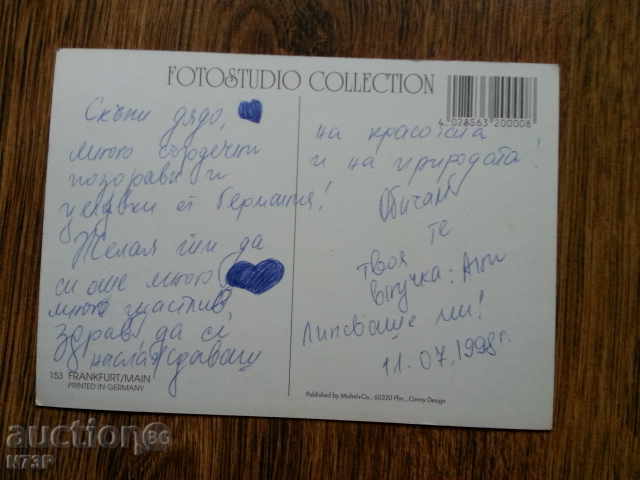 FOTOSTUDIO COLLECTION
4 028563 200008
Скъпи дядо,
много сърдечни
поздрави и
целувки от Германия!
Желая ти да
си още много
много щастлив,
здрав, да се
наслаждаваш
на красотата
и на природата!
Обичам
те
твоя
внучка: Ани
Липсваше ми!
11.07.1998г.
153 FRANKFURT/MAIN
PRINTED IN GERMANY
Published by Michel+Co., 60320 Ffm., Conny Design
auction BG
N73P